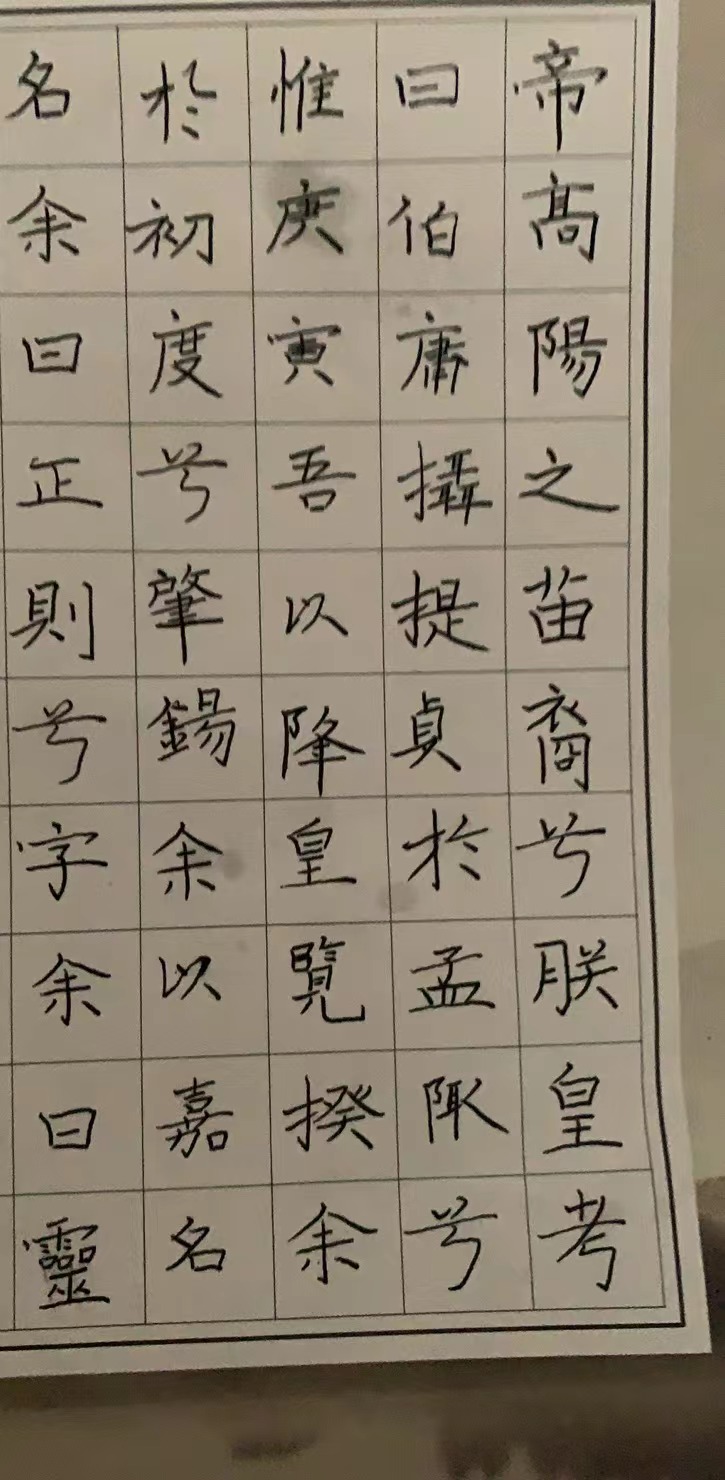 帝高陽之苗裔兮朕皇考
曰伯庸攝提貞於孟陬兮
惟庚寅吾以降皇覽揆余
於初度兮肇錫余以嘉名
名余曰正則兮字余曰靈